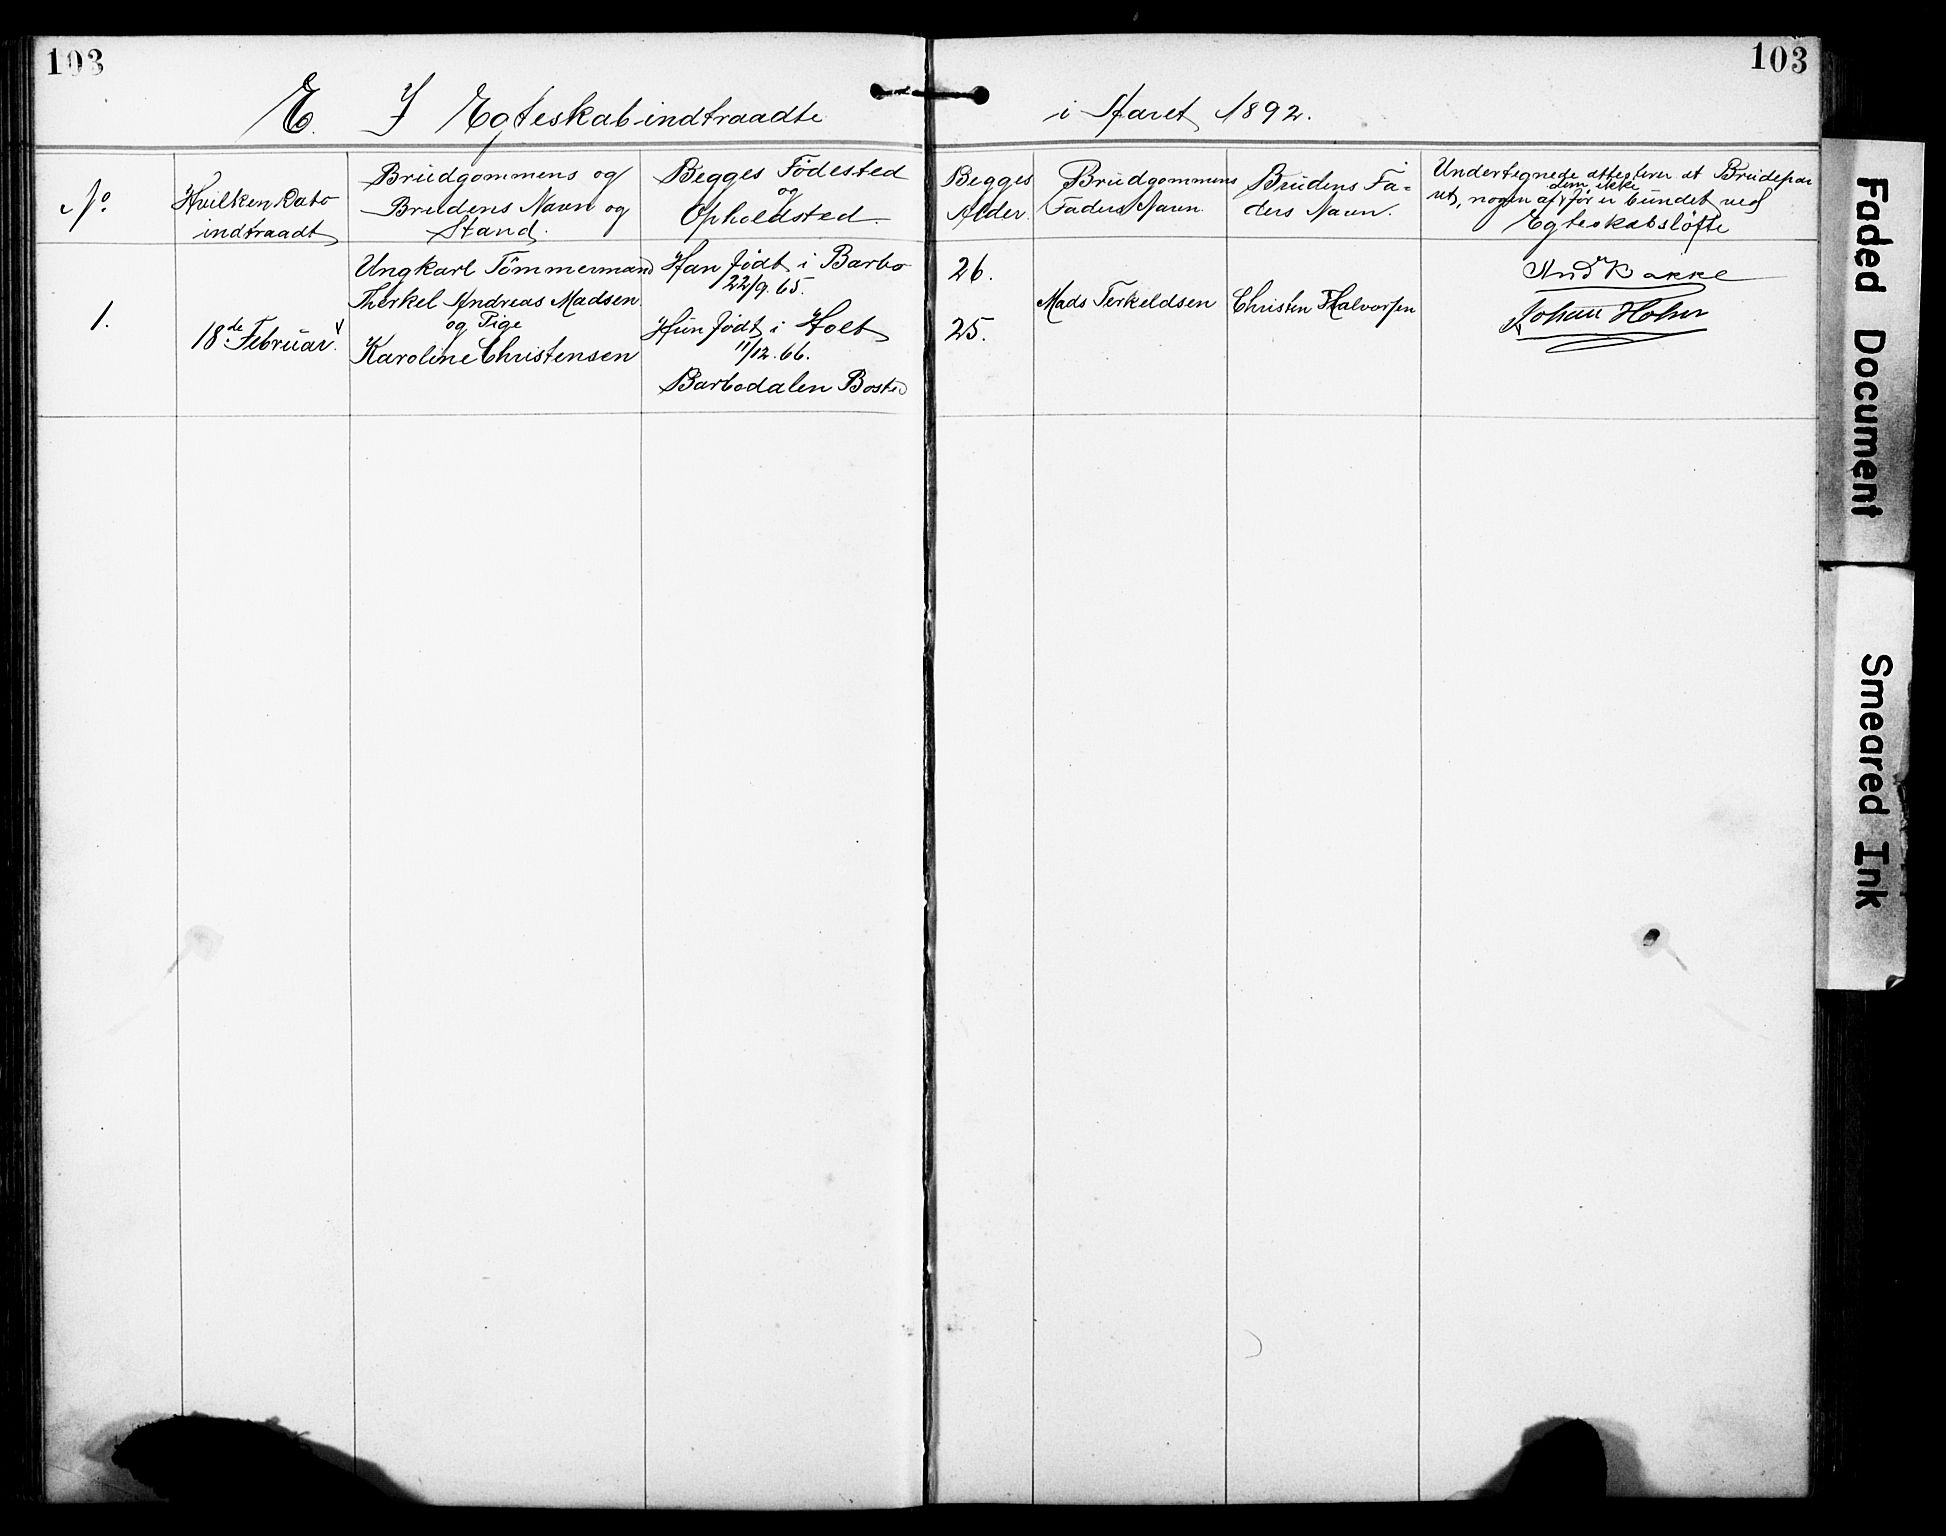 103
103
E. I Egteskab indtraadte i Aaret 1892.
No
Hvilken Dato
indtraadt
Brudgommens og
Brudens Navn og
Stand.
Begges Födested
og
Opholdsted.
Begges
Alder.
Brudgommens
Faders Navn.
Brudens Fa-
ders Navn.
Undertegnede attesterer at Brudepar
ret, nogen af dem ikke før er bundet ved
Egteskabsløfte
1.
18de Februar.
Ungkarl Tömmermand
Therkel Andreas Madsen
og Pige
Karoline Christensen
Han født i Barbo
22/9. 65.
Hun født i Holt
11/12. 66.
Barbodalen Bosted
26.
25.
Mads Terkeldsen
Christen Halvorsen
And Bakke
Johan Holm
Faded Document
Smeared Ink